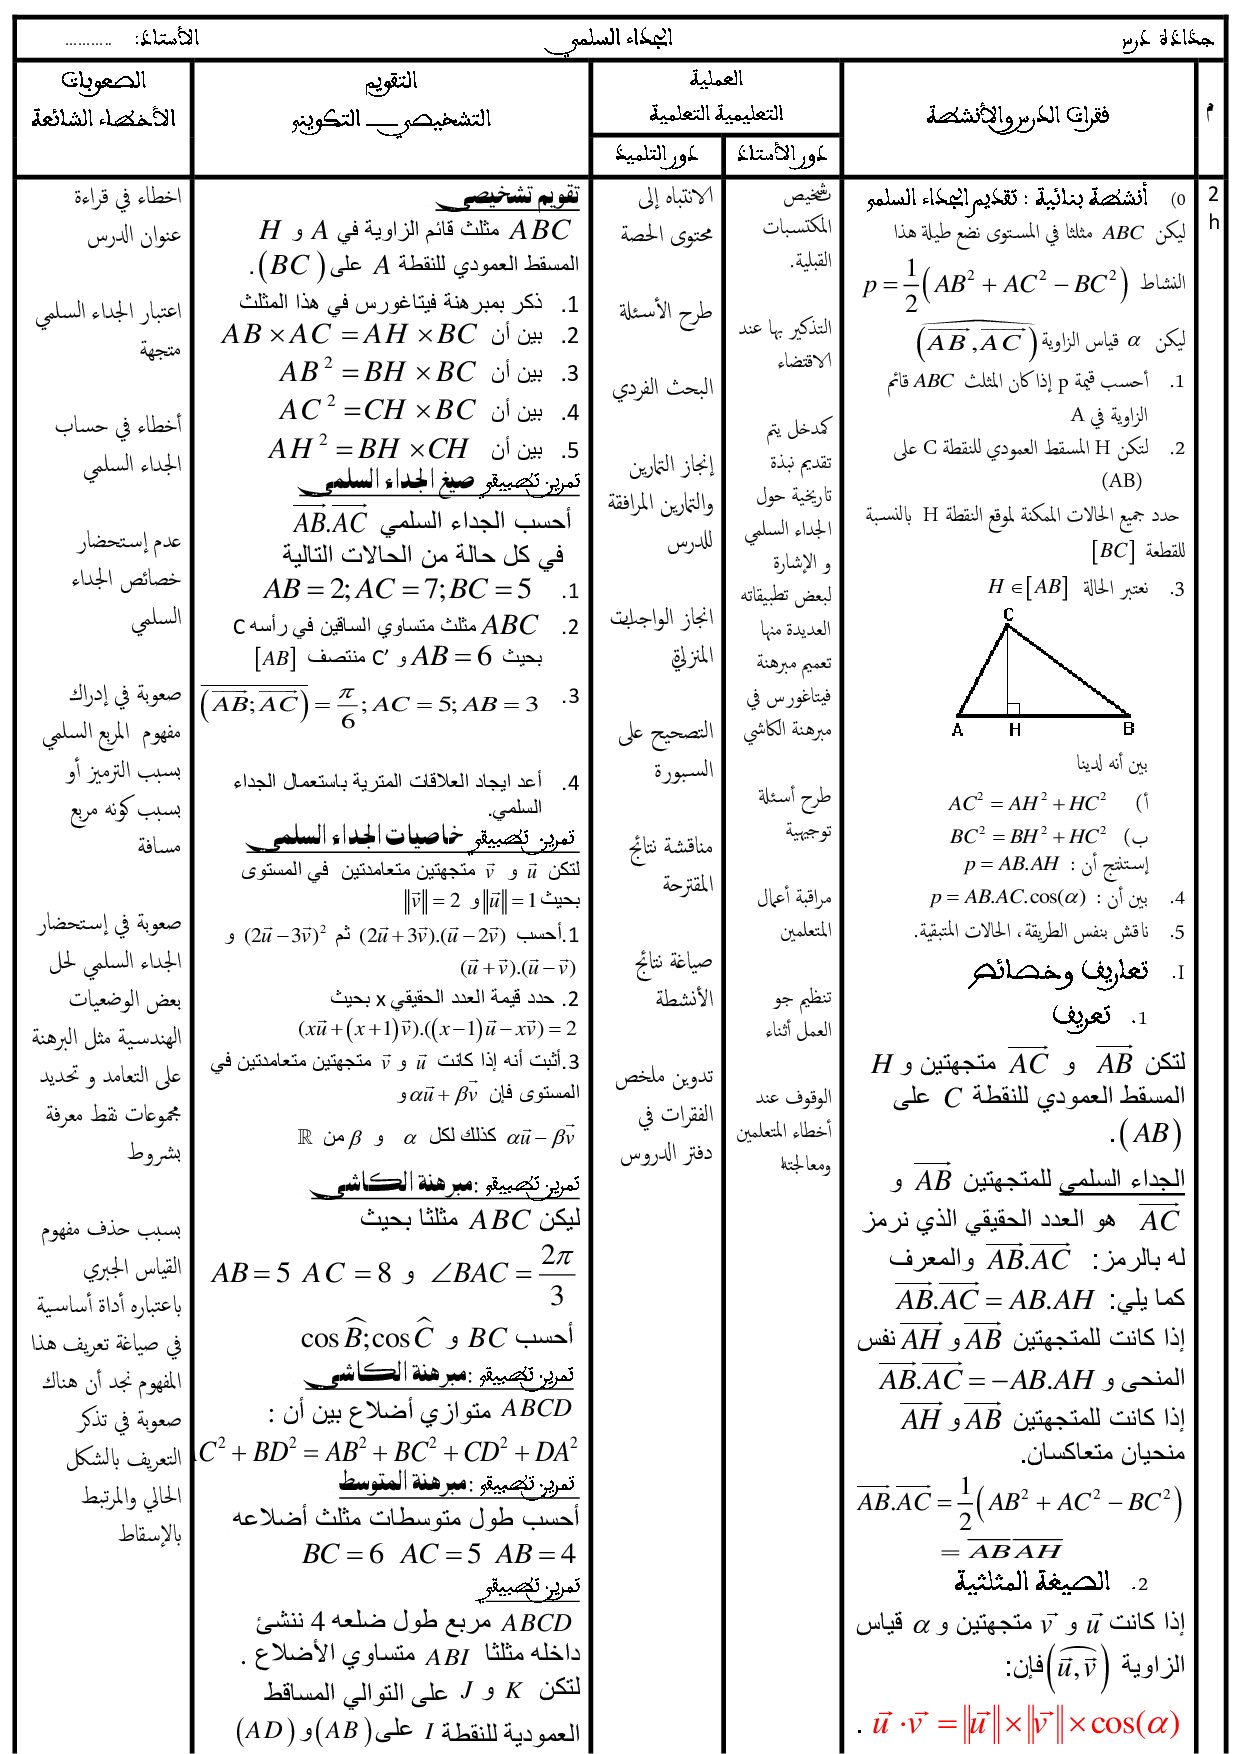 جذاذة درس الجداء السلمي الأستاذ: ..........
م
فقرات الدرس والأنشطة
العملية
التعليمية التعلمية
دور الأستاذ
دور التلميذ
التقويم
التشخيصي ـــ التكويني
الصعوبات
الأخطاء الشائعة
2
h
0) أنشطة بنائية : تقديم الجداء السلمي
ليكن ABC مثلثا في المستوى نضع طيلة هذا
النشاط p = 1/2 (AB² + AC² − BC²)
ليكن α قياس الزاوية (AB, AC)
1. أحسب قيمة p إذا كان المثلث ABC قائم
الزاوية في A
2. لتكن H المسقط العمودي للنقطة C على
(AB)
حدد جميع الحالات الممكنة لموقع النقطة H بالنسبة
للقطعة [BC]
3. نعتبر الحالة H ∈ [AB]
C
A H B
بين أنه لدينا
أ) AC² = AH² + HC²
ب) BC² = BH² + HC²
إستنتج أن : p = AB.AH
4. بين أن : p = AB.AC.cos(α)
5. ناقش بنفس الطريقة، الحالات المتبقية.
I. تعاريف وخصائص
1. تعريف
لتكن AB و AC متجهتين و H
المسقط العمودي للنقطة C على
(AB).
الجداء السلمي للمتجهتين AB و
AC هو العدد الحقيقي الذي نرمز
له بالرمز: AB.AC والمعرف
كما يلي: AB.AC = AB.AH
إذا كانت للمتجهتين AB و AH نفس
المنحى و AB.AC = −AB.AH
إذا كانت للمتجهتين AB و AH
منحيان متعاكسان.
AB.AC = 1/2 (AB² + AC² − BC²)
= AB AH
2. الصيغة المثلثية
إذا كانت u و v متجهتين و α قياس
الزاوية (u,v) فإن:
u · v = ||u|| × ||v|| × cos(α) .
تشخيص
المكتسبات
القبلية.
التذكير بها عند
الاقتضاء
كمدخل يتم
تقديم نبذة
تاريخية حول
الجداء السلمي
و الإشارة
لبعض تطبيقاته
العديدة منها
تعميم مبرهنة
فيتاغورس في
مبرهنة الكاشي
طرح أسئلة
توجيهية
مراقبة أعمال
المتعلمين
تنظيم جو
العمل أثناء
الوقوف عند
أخطاء المتعلمين
ومعالجتها
الانتباه إلى
محتوى الحصة
طرح الأسئلة
البحث الفردي
إنجاز التمارين
والتمارين المرافقة
للدرس
انجاز الواجبات
المنزلية
التصحيح على
السبورة
مناقشة نتائج
المقترحة
صياغة نتائج
الأنشطة
تدوين ملخص
الفقرات في
دفتر الدروس
تقويم تشخيصي
ABC مثلث قائم الزاوية في A و H
المسقط العمودي للنقطة A على (BC).
1. ذكر بمبرهنة فيتاغورس في هذا المثلث
2. بين أن AB × AC = AH × BC
3. بين أن AB² = BH × BC
4. بين أن AC² = CH × BC
5. بين أن AH² = BH × CH
تمرين تطبيقي صيغ الجداء السلمي
أحسب الجداء السلمي AB.AC
في كل حالة من الحالات التالية
1. AB = 2; AC = 7; BC = 5
2. ABC مثلث متساوي الساقين في رأسه C
بحيث AB = 6 و C' منتصف [AB]
3. (AB; AC) = π/6 ; AC = 5; AB = 3
4. أعد ايجاد العلاقات المترية باستعمال الجداء
السلمي.
تمرين تطبيقي خاصيات الجداء السلمي
لتكن u و v متجهتين متعامدتين في المستوى
بحيث ||u|| = 1 و ||v|| = 2
1.أحسب (2u + 3v).(u − 2v) ثم (2u − 3v)² و
(u + v).(u − v)
2. حدد قيمة العدد الحقيقي x بحيث
(xu + (x+1)v).((x−1)u − xv) = 2
3.أثبت أنه إذا كانت u و v متجهتين متعامدتين في
المستوى فإن αu + βv و
αu − βv كذلك لكل α و β من ℝ
تمرين تطبيقي :مبرهنة الكاشي
ليكن ABC مثلثا بحيث
AB = 5 AC = 8 و ∠BAC = 2π/3
أحسب BC و cos B; cos C
تمرين تطبيقي :مبرهنة الكاشي
ABCD متوازي أضلاع بين أن :
AC² + BD² = AB² + BC² + CD² + DA²
تمرين تطبيقي :مبرهنة المتوسط
أحسب طول متوسطات مثلث أضلاعه
BC = 6 AC = 5 AB = 4
تمرين تطبيقي
ABCD مربع طول ضلعه 4 ننشئ
داخله مثلثا ABI متساوي الأضلاع .
لتكن K و J على التوالي المساقط
العمودية للنقطة I على (AB) و (AD)
اخطاء في قراءة
عنوان الدرس
اعتبار الجداء السلمي
متجهة
أخطاء في حساب
الجداء السلمي
عدم إستحضار
خصائص الجداء
السلمي
صعوبة في إدراك
مفهوم المربع السلمي
بسبب الترميز أو
بسبب كونه مربع
مسافة
صعوبة في إستحضار
الجداء السلمي لحل
بعض الوضعيات
الهندسية مثل البرهنة
على التعامد و تحديد
مجموعات نقط معرفة
بشروط
بسبب حذف مفهوم
القياس الجبري
باعتباره أداة أساسية
في صياغة تعريف هذا
المفهوم نجد أن هناك
صعوبة في تذكر
التعريف بالشكل
الحالي والمرتبط
بالإسقاط